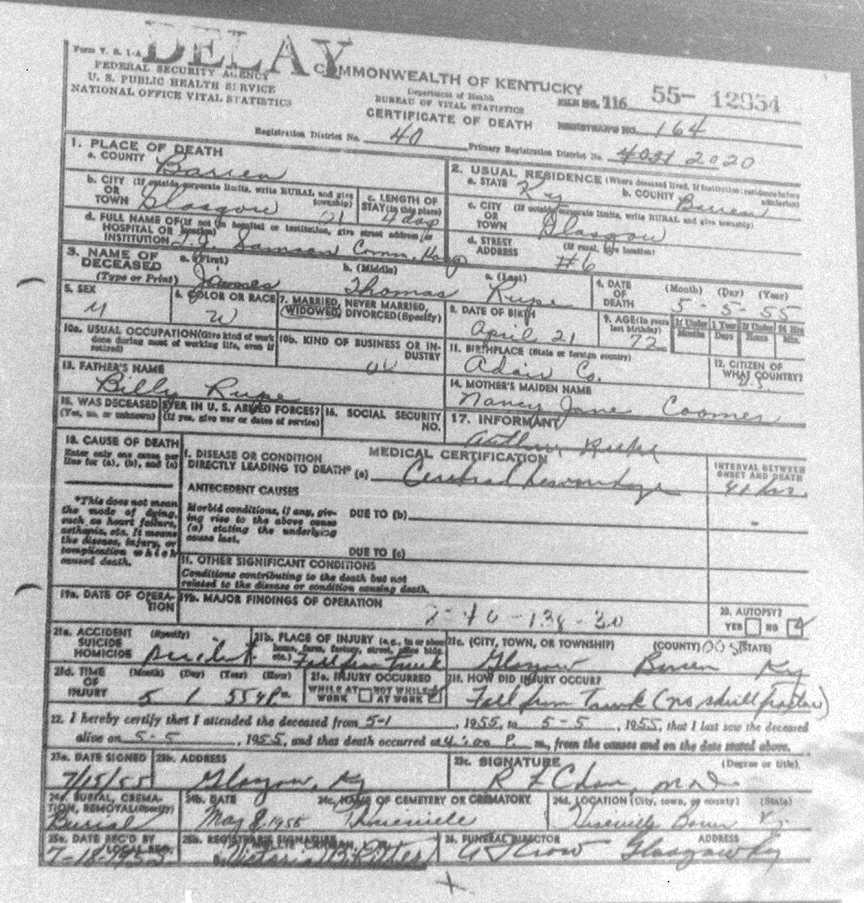 DELAY
Form V. S. 1-A
FEDERAL SECURITY AGENCY
U. S. PUBLIC HEALTH SERVICE
NATIONAL OFFICE VITAL STATISTICS
COMMONWEALTH OF KENTUCKY
Department of Health
BUREAU OF VITAL STATISTICS
CERTIFICATE OF DEATH
FILE NO. 116 55- 12954
REGISTRAR'S NO. 164
Registration District No. 40 Primary Registration District No. 2020
1. PLACE OF DEATH
a. COUNTY Barren
b. CITY (If outside corporate limits, write RURAL and give township)
OR
TOWN Glasgow 21
c. LENGTH OF STAY (in this place) 4 days
d. FULL NAME OF (If not in hospital or institution, give street address or location)
HOSPITAL OR
INSTITUTION T. J. Samson Comm. Hosp
2. USUAL RESIDENCE (Where deceased lived. If institution: residence before admission)
a. STATE Ky
b. COUNTY Barren
c. CITY (If outside corporate limits, write RURAL and give township)
OR
TOWN Glasgow
d. STREET (If rural, give location)
ADDRESS #6
3. NAME OF DECEASED (Type or Print)
a. (First) James
b. (Middle) Thomas
c. (Last) Rupe
4. DATE OF DEATH (Month) (Day) (Year)
5-5-55
5. SEX
M
6. COLOR OR RACE
W
7. MARRIED, NEVER MARRIED, WIDOWED, DIVORCED (Specify)
8. DATE OF BIRTH
April 21
9. AGE (In years last birthday)
72
If Under 1 Year
Months Days
If Under 24 Hrs
Hours Min.
10a. USUAL OCCUPATION (Give kind of work done during most of working life, even if retired)
10b. KIND OF BUSINESS OR INDUSTRY
11. BIRTHPLACE (State or foreign country)
Adair Co.
12. CITIZEN OF WHAT COUNTRY?
13. FATHER'S NAME
Billy Rupe
14. MOTHER'S MAIDEN NAME
Nancy Jane Coomer
15. WAS DECEASED EVER IN U. S. ARMED FORCES?
(Yes, no, or unknown) (If yes, give war or dates of service)
16. SOCIAL SECURITY NO.
17. INFORMANT
Arthur Rupe
18. CAUSE OF DEATH
Enter only one cause per line for (a), (b), and (c)
*This does not mean the mode of dying, such as heart failure, asthenia, etc. It means the disease, injury, or complication which caused death.
MEDICAL CERTIFICATION
I. DISEASE OR CONDITION
DIRECTLY LEADING TO DEATH* (a) Cerebral hemorrhage
INTERVAL BETWEEN ONSET AND DEATH
ANTECEDENT CAUSES
Morbid conditions, if any, giving rise to the above cause (a) stating the underlying cause last.
DUE TO (b)
-
DUE TO (c)
II. OTHER SIGNIFICANT CONDITIONS
Conditions contributing to the death but not related to the disease or condition causing death.
19a. DATE OF OPERATION
19b. MAJOR FINDINGS OF OPERATION
20. AUTOPSY?
YES NO
21a. ACCIDENT (Specify)
SUICIDE
HOMICIDE Accident
21b. PLACE OF INJURY (e.g., in or about home, farm, factory, street, office bldg. etc.)
Fall from Truck
21c. (CITY, TOWN, OR TOWNSHIP) (COUNTY) (STATE)
Glasgow Barren Ky
21d. TIME OF INJURY (Month) (Day) (Year) (Hour)
5 1 55 4 P m.
21e. INJURY OCCURRED
WHILE AT WORK NOT WHILE AT WORK
21f. HOW DID INJURY OCCUR?
Fall from Truck (no skull fracture)
22. I hereby certify that I attended the deceased from 5-1, 1955, to 5-5, 1955, that I last saw the deceased
alive on 5-5, 1955, and that death occurred at 4:00 P. m., from the causes and on the date stated above.
23a. DATE SIGNED
7/15/55
23b. ADDRESS
Glasgow, Ky
23c. SIGNATURE (Degree or title)
24a. BURIAL, CREMATION, REMOVAL (Specify)
Burial
24b. DATE
May 8 1955
24c. NAME OF CEMETERY OR CREMATORY
24d. LOCATION (City, town, or county) (State)
Hiseville Barren Ky
25a. DATE REC'D BY LOCAL REG.
7-18-1955
25b. REGISTRAR'S SIGNATURE
26. FUNERAL DIRECTOR ADDRESS
Glasgow Ky